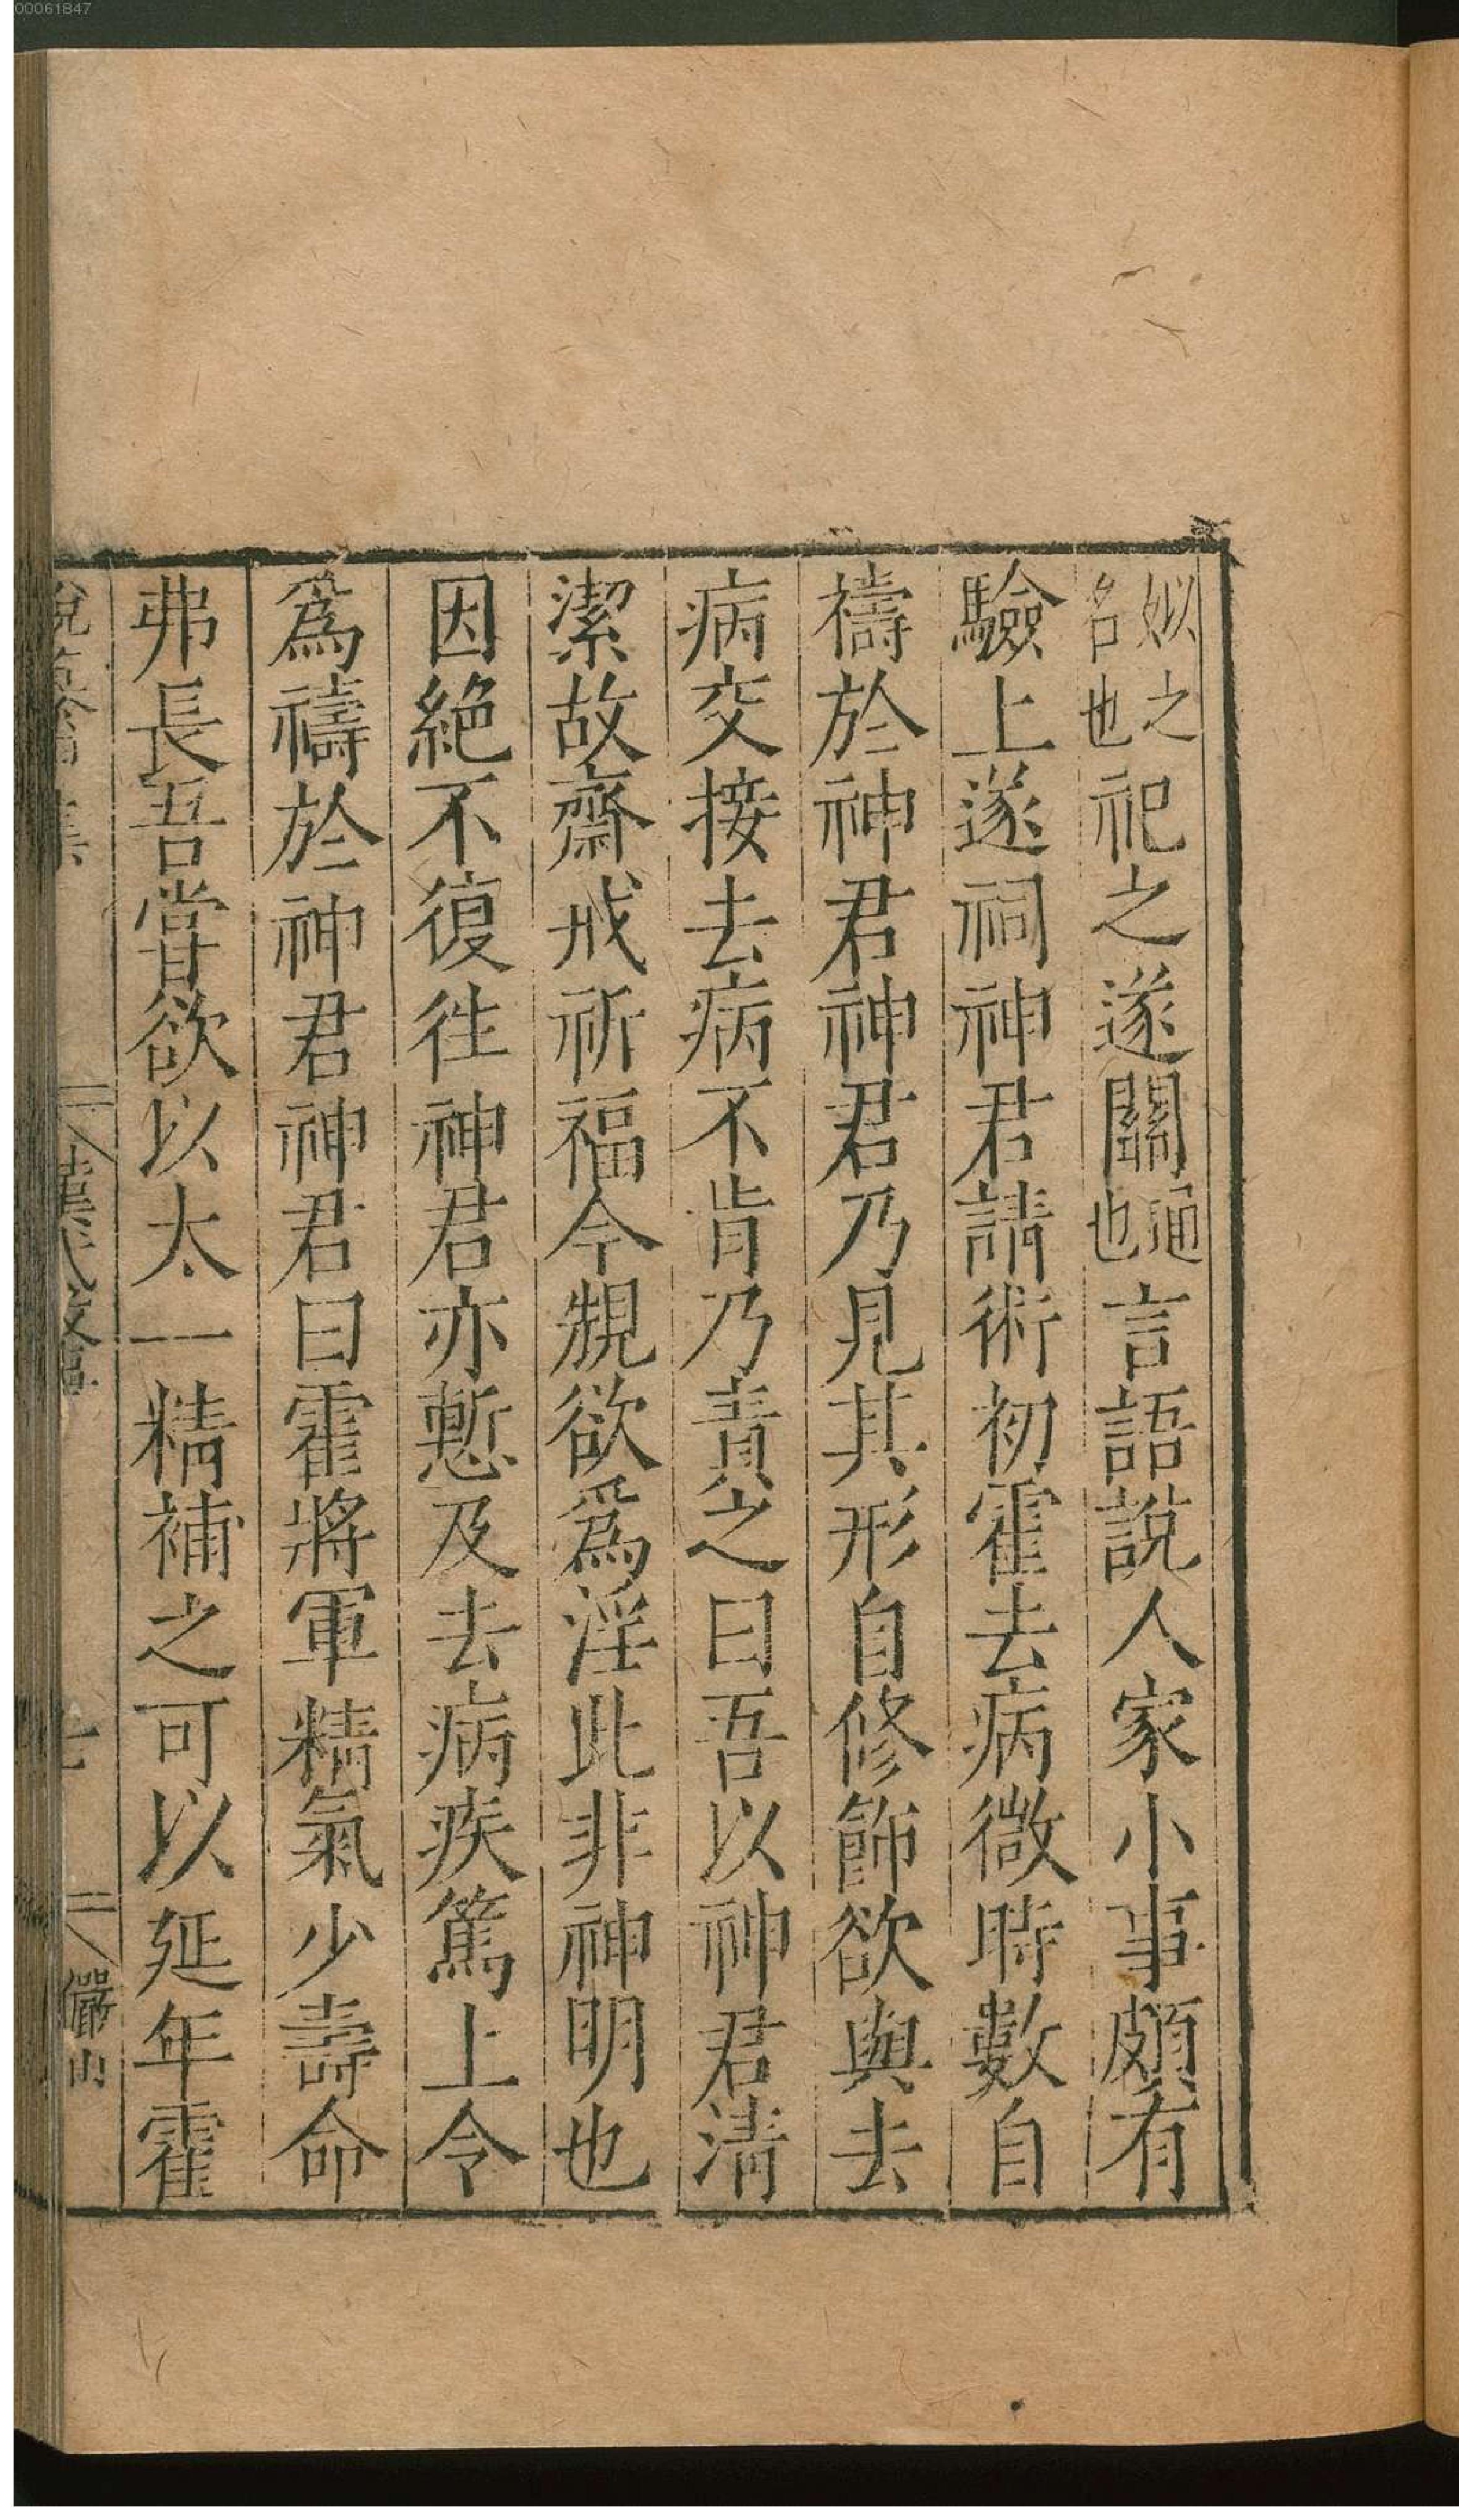 00061847
姒之名也祀之遂關通也言語說人家小事頗有
驗上遂祠神君請術初霍去病微時數自
禱於神君神君乃見其形自修飾欲與去
病交接去病不肯乃責之曰吾以神君清
潔故齋戒祈福今覡欲爲淫此非神明也
因絶不復徃神君亦慙及去病疾篤上令
爲禱於神君神君曰霍將軍精氣少壽命
弗長吾嘗欲以太一精補之可以延年霍
七
儼山